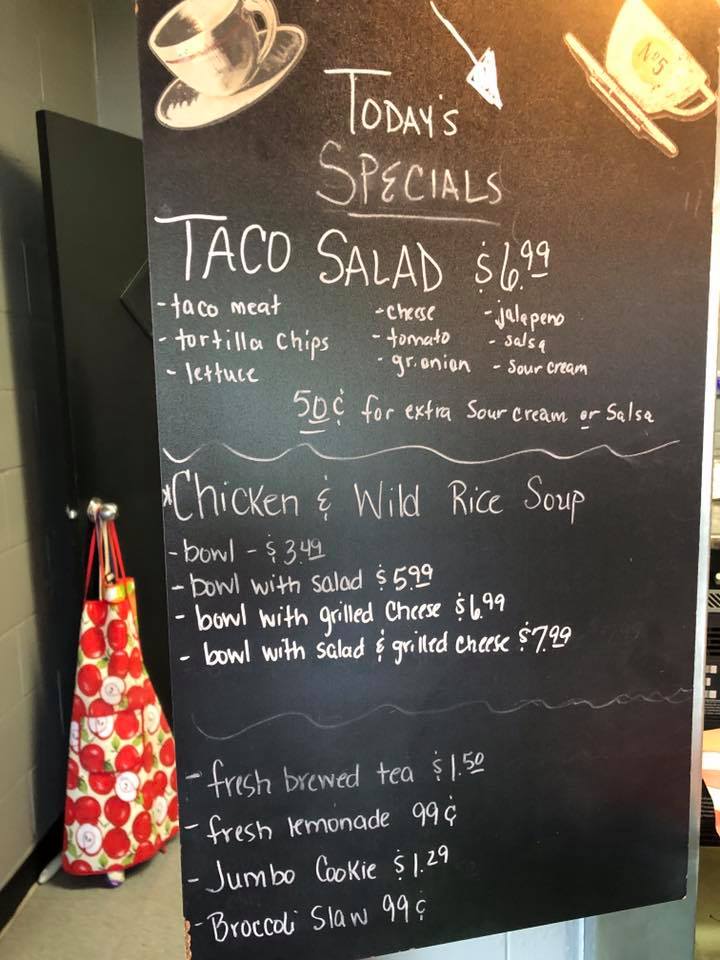 N⁰5
TODAY'S
SPECIALS
TACO SALAD $6.99
- taco meat - cheese - jalapeno
- tortilla chips - tomato - salsa
- lettuce - gr. onion - sour cream
50¢ for extra Sour cream or Salsa
*Chicken & Wild Rice Soup
- bowl - $3.49
- bowl with salad $5.99
- bowl with grilled cheese $6.99
- bowl with salad & grilled cheese $7.99
- fresh brewed tea $1.50
- fresh lemonade 99¢
- Jumbo Cookie $1.29
- Broccoli Slaw 99¢